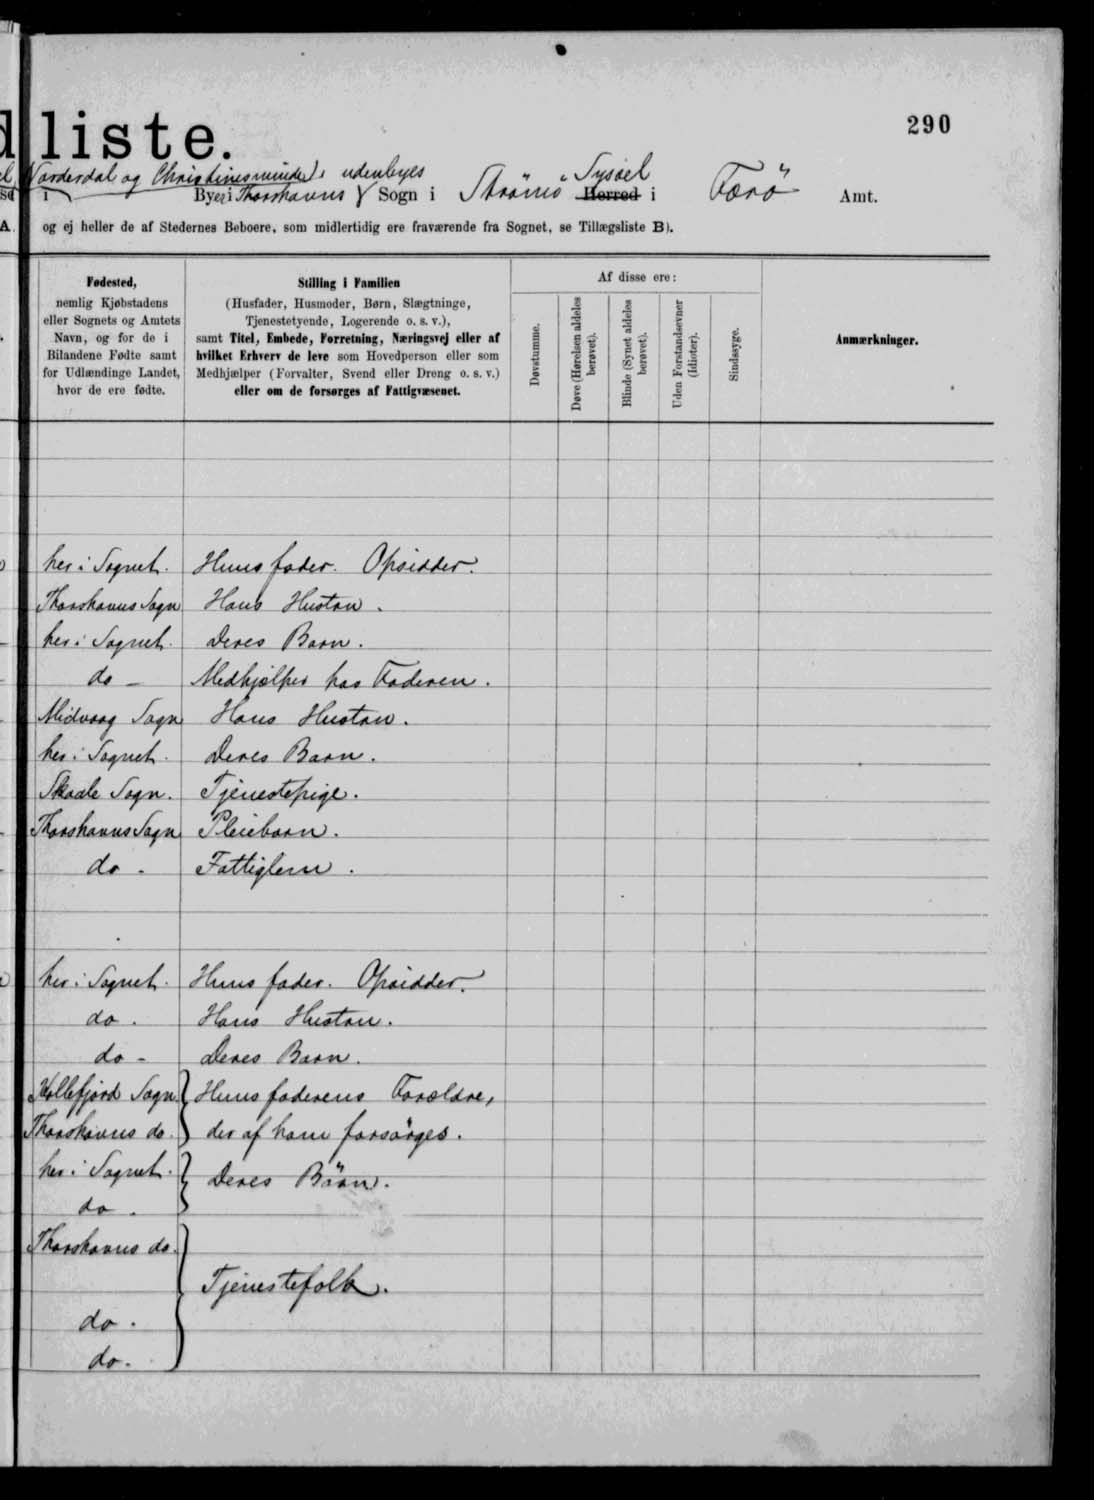 290
liste.
Norderdal og Christinesminde, udenbyes
i Byer i Thorshavns Sogn i Strömö Syssel Herred i Færö Amt.
og ej heller de af Stedernes Beboere, som midlertidig ere fraværende fra Sognet, se Tillægsliste B).
Fødested,
nemlig Kjøbstadens
eller Sognets og Amtets
Navn, og for de i
Bilandene Fødte samt
for Udlændinge Landet,
hvor de ere fødte.
Stilling i Familien
(Husfader, Husmoder, Børn, Slægtninge,
Tjenestetyende, Logerende o. s. v.),
samt Titel, Embede, Forretning, Næringsvej eller af
hvilket Erhverv de leve som Hovedperson eller som
Medhjælper (Forvalter, Svend eller Dreng o. s. v.)
eller om de forsørges af Fattigvæsenet.
Af disse ere:
Døvstumme.
Døve (Hørelsen aldeles berøvet).
Blinde (Synet aldeles berøvet).
Uden Forstandsevner (Idioter).
Sindssyge.
Anmærkninger.
her i Sognet. Huusfader. Opsidder.
Thorshavns Sogn Hans Hustru.
her i Sognet. Deres Barn.
do - Medhjælper hos Faderen.
Midvaag Sogn Hans Hustru.
her i Sognet. Deres Barn.
Skaale Sogn. Tjenestepige.
Thorshavns Sogn Pleiebarn.
do - Fattiglem.
her i Sognet. Huusfader. Opsidder.
do. Hans Hustru.
do - Deres Barn.
Kollefjord Sogn. Huusfaderens Forældre,
Thorshavns do. der af ham forsörges.
her i Sognet. Deres Börn.
do.
Thorshavns do.
Tjenestefolk.
do.
do.